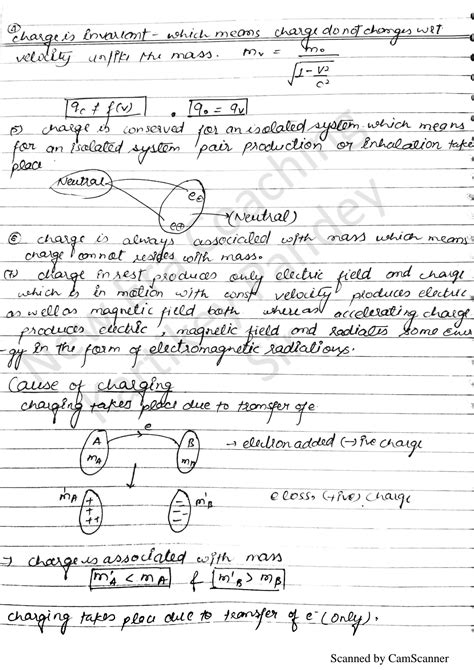 ④ charge is invariant - which means charge do not changes wrt
velocity unlike the mass. mv = mo / √(1 - v²/c²)
qc ≠ f(v) . qo = qv
⑤ charge is conserved for an isolated system which means
for an isolated system pair production or inhalation take
place
Neutral
e⊖
e⊕ (Neutral)
⑥ charge is always associated with mass which means
charge cannot resides with mass.
(7) charge in rest produces only electric field and charge
which is in motion with const velocity produces electric
as well as magnetic field both whereas accelerating charge
produces electric, magnetic field and radiates some ener
gy in the form of electromagnetic radiations.
Cause of charging
charging takes place due to transfer of e
A mA e B m → electron added (-)ive charge
m'A + + ++ - - - m'B e loss, (+ive) charge
→ charge is associated with mass
m'A < mA f m'B > mB
charging takes place due to transfer of e⁻ (only).
Scanned by CamScanner